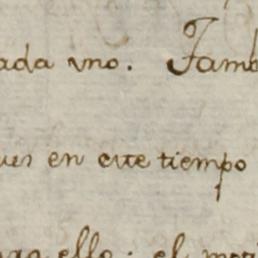 ada uno. Tamb
ues en este tiempo
ello; el